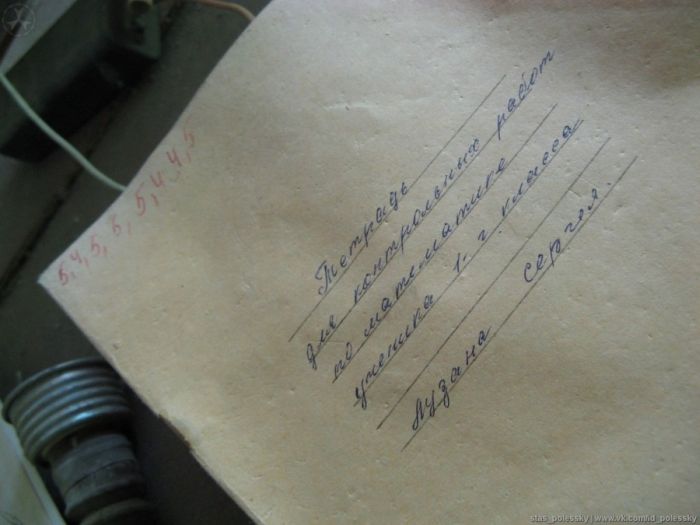 5, 4, 5, 3, 5, 4, 4, 5
Тетрадь
для контрольных работ
по математике
ученика 1 "г" класса
Лузана Сергея.
stas_polessky | www.vk.com/id_polessky